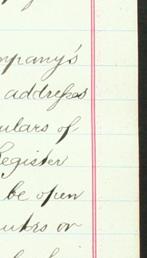 mpany's
addresses
culars of
Register
be open
utors or